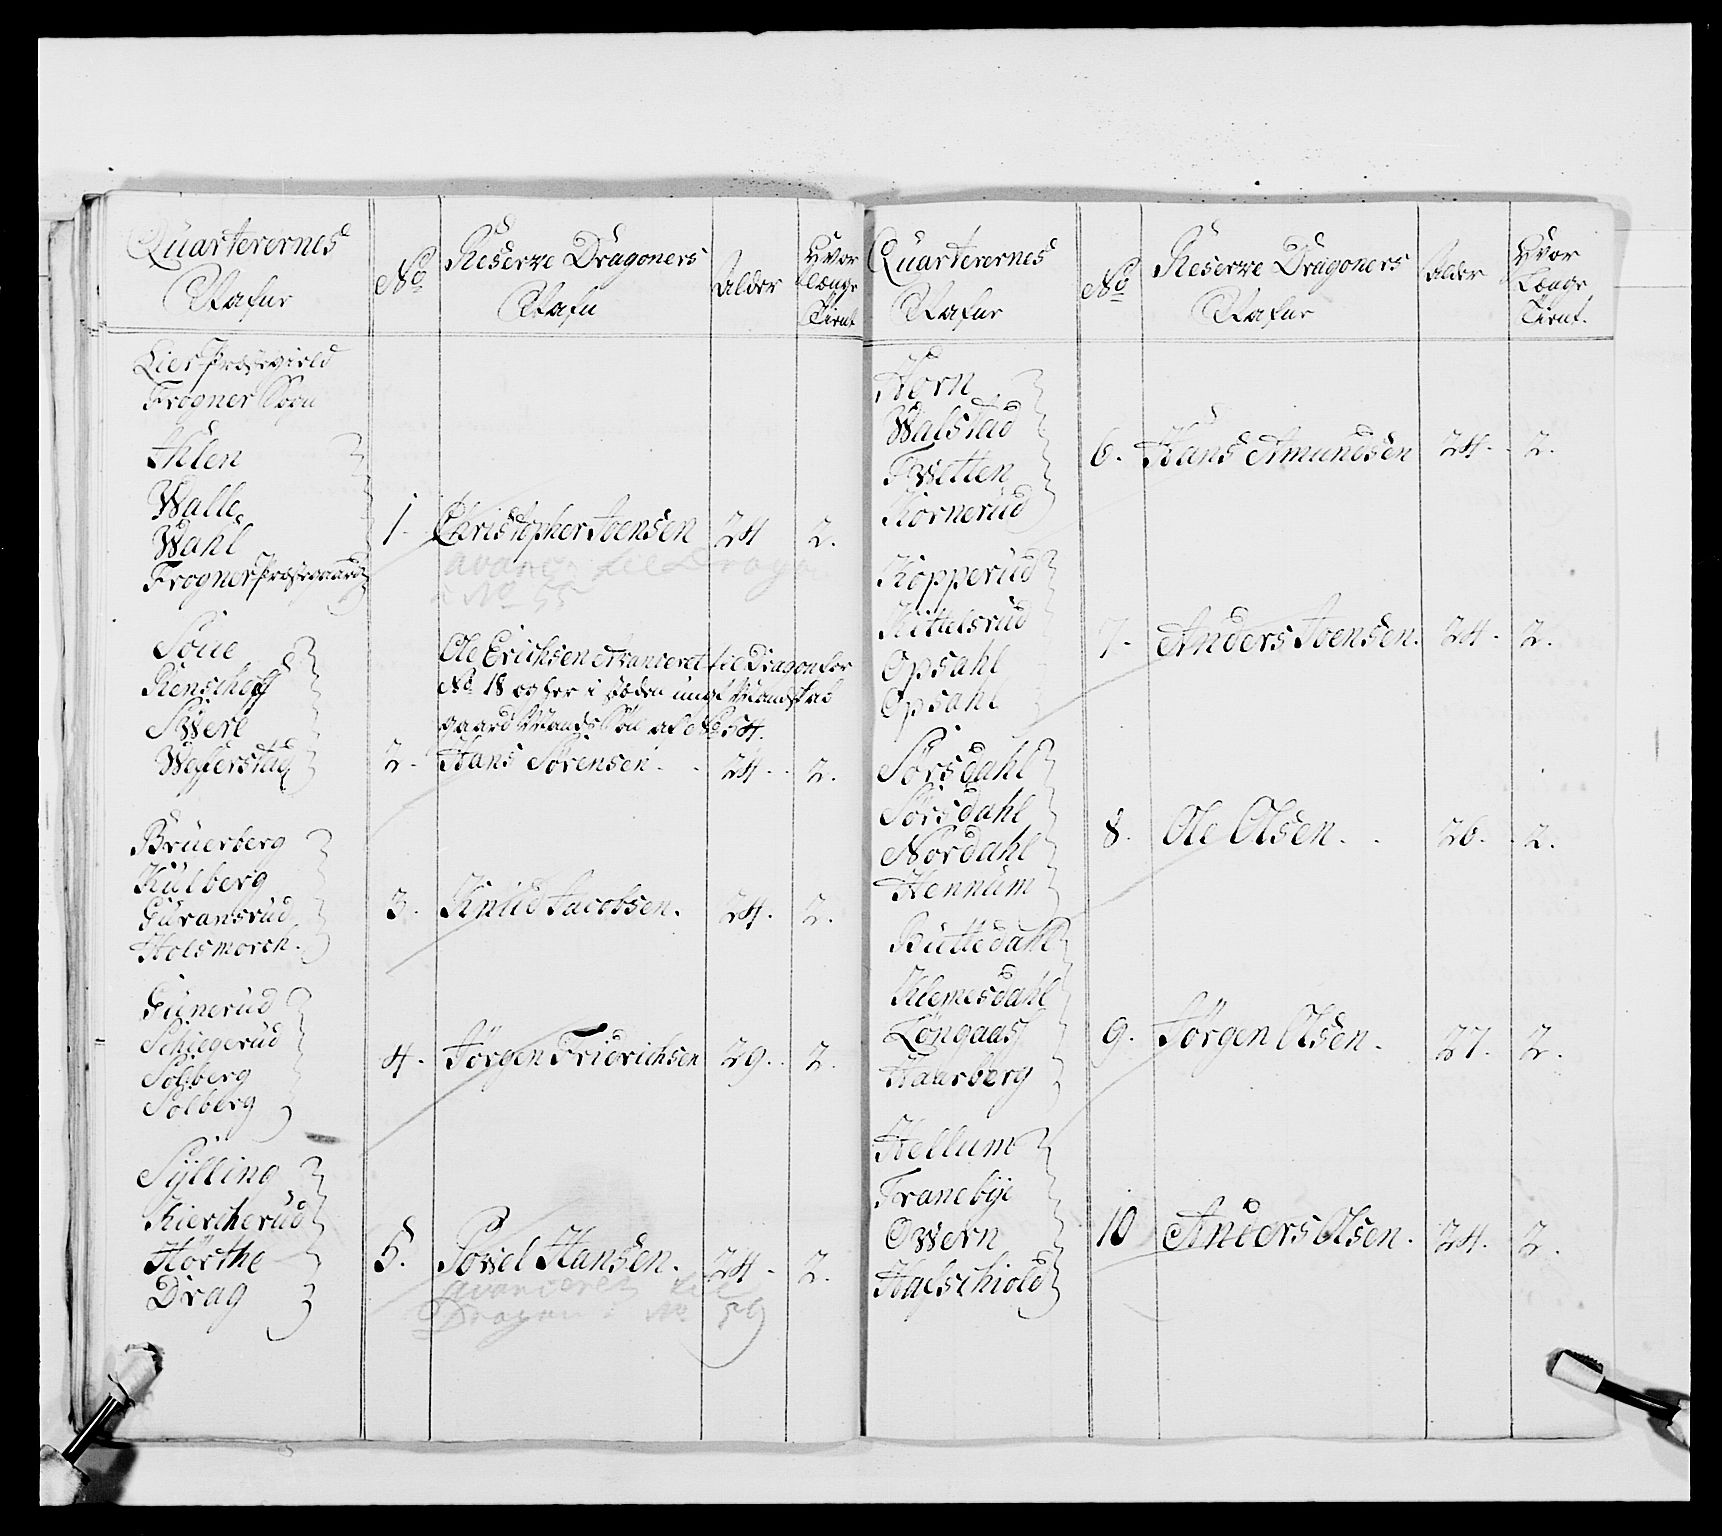 Quarterernes
Nafne
No
Reserve Dragoners
Nafn
Alder
Hvor
længe
Tient
Lier Præstegield
Frogner Sogn
Ihlen
Walle
Wahl
Frogner Præstegaard
1. Christopher Joensen 24 2.
avancr. til Dragon
No 55
Soue
Renschoff
Svere
Wefferstad
Ole Erichsen Avanceret til Dragon for
No. 18 og her i steden
gaard Mands Søn af No. 54.
2. Hans Sørensen. 24. 2.
Bruerberg
Kulberg
Guransrud
Holsmorch.
3. Knud Jacobsen. 24. 2.
Gunerud
Schiegerud
Solberg
Solberg
4. Jørgen Fridrichsen 29. 2.
Sylling
Kiercherud
Hørthe
Drag
5. Povel Hansen. 24. 2.
avanceret til
Dragon i No 59
Quarterernes
Nafne
No
Reserve Dragoners
Nafne
Alder
Hvor
Længe
Tient.
Horn
Walstad
Tvetten
Kornerud
6. Hans Amundsen 24. 2.
Kopperud
Kittelsrud
Opsahl
Opsahl
7. Anders Joensen. 24. 2.
Sørsdahl
Sørsdahl
Nordahl
Hennum
8. Ole Olsen. 26. 2.
Buttedahl
Klemesdahl
Longaas
Haarberg
9. Jørgen Olsen. 27. 2.
Hellum
Tranebye
Owern
Hafschiold
10 Anders Olsen. 24. 2.